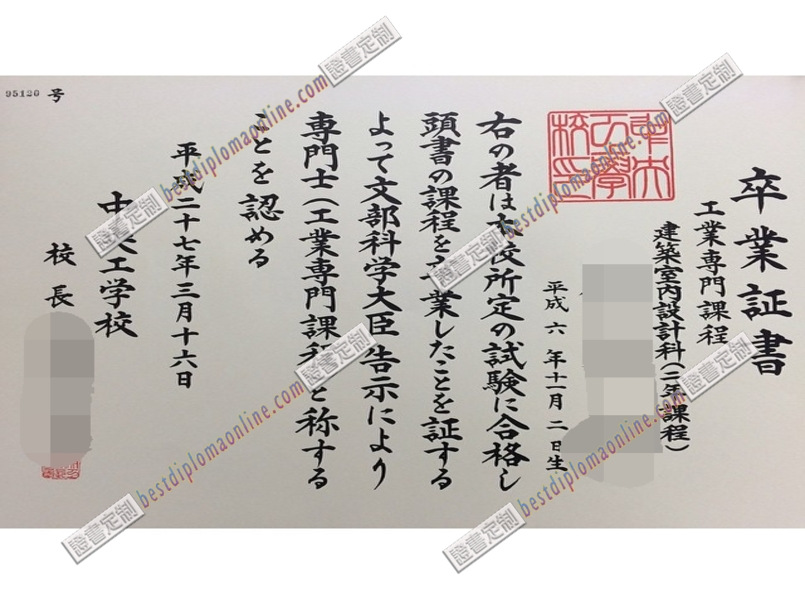 卒業証書
工業専門課程
建築室内設計科(二年課程)
平成六年十一月二日生
右の者は本校所定の試験に合格し
頭書の課程を卒業したことを証する
よって文部科学大臣告示により
専門士(工業専門課程)と称する
ことを認める
平成二十七年三月十六日
中央工学校
校長
95126 号
中央工学校印
證書定制
bestdiplomaonline.com
證書定制
bestdiplomaonline.com
證書定制
bestdiplomaonline.com
證書定制
bestdiplomaonline.com
證書定制
證書定制
證書定制
證書定制